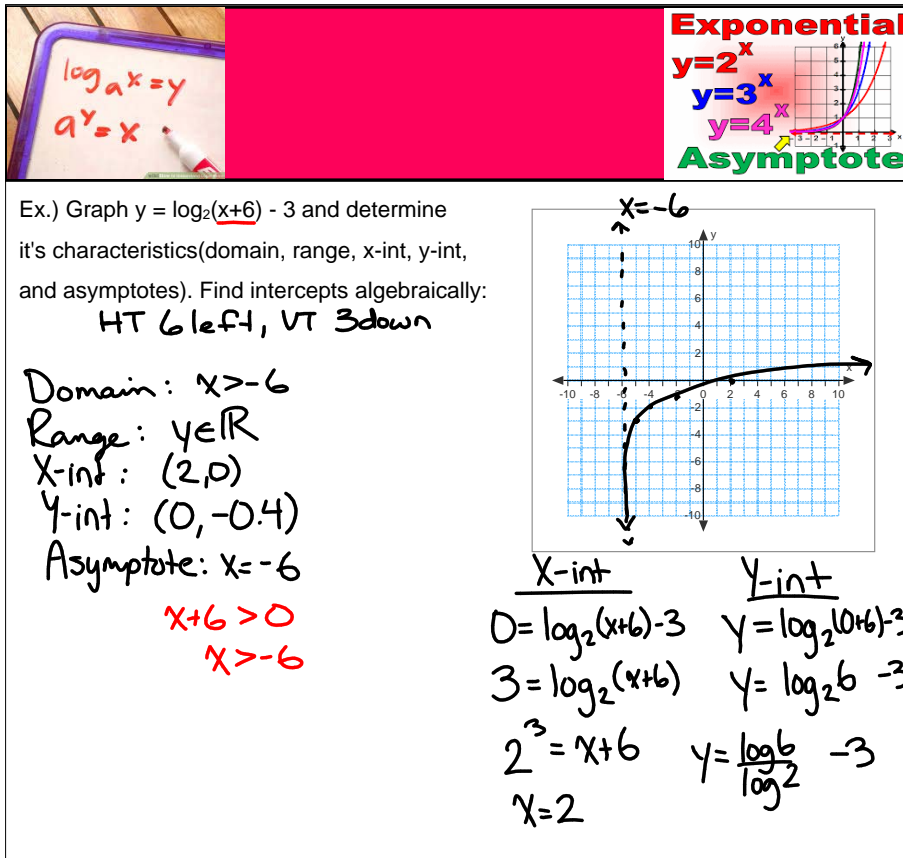 logₐx = y
aʸ = x
Exponential
y=2ˣ
y=3ˣ
y=4ˣ
Asymptote
Ex.) Graph y = log₂(x+6) - 3 and determine
it's characteristics(domain, range, x-int, y-int,
and asymptotes). Find intercepts algebraically:
HT 6 left, VT 3 down
Domain: x>-6
Range: y∈ℝ
X-int: (2,0)
Y-int: (0,-0.4)
Asymptote: x=-6
x+6 >0
x>-6
x=-6
y
10
8
6
4
2
x
-10 -8 -6 -4 -2 0 2 4 6 8 10
-2
-4
-6
-8
-10
X-int
0=log₂(x+6)-3
3=log₂(x+6)
2³=x+6
x=2
Y-int
y=log₂(0+6)-3
y=log₂6 -3
y=log6/log2 -3